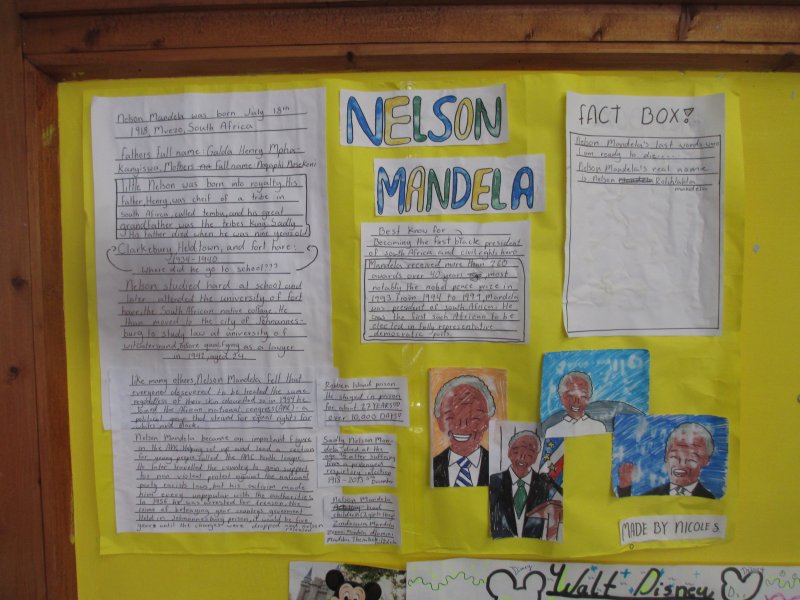 Nelson Mandela was born July 18th
1918, Mvezo, South Africa
fathers full name: Galda Henry Mpha-
Kangiswa, Mothers full name Noqaphi Nosekeni
little Nelson was born into royalty. His
father, Henry, was cheif of a tribe in
south Africa, called tembu, and his great
grandfather was the tribes king. Sadly
His father died when he was nine years old
Clarkebury Heldtown, and fort hare:
1934-1940
Where did he go to school???
Nelson studied hard at school and
later attended the university of fort
hare, the South African native college. He
then moved to the city of Johannes-
burg to study law at university of
witwatersrand, before qualifying as a lawyer
in 1942, aged 24.
Like many others, Nelson Mandela felt that
everyone deserved to be treated the same
regardless of their skin
joined the African national congress (ANC) - a
political group that strived for equal rights for
whites and black.
Nelson Mandela became an important figure
in the ANC, Helping set up and lead a section
for young people called the ANC youth league.
He later travelled the country to gain support
his non violent protest against the national
party racists laws, but his activism made
him very unpopular with the authorities
In 1956 he was arrested for treason, the
crime of betraying your country's government
Held in Johannesburg prison, it would be five
years until the charges were dropped and nelson
released
NELSON
MANDELA
Best know for
Becoming the first black president
of south Africa, and civil rights hero
Mandela received more than 260
awards over 40 years, most
notably the nobel peace prize in
1993. From 1994 to 1999, Mandela
was president of south Africa. He
was the first such African to be
elected in fully representative
democratic polls.
Robben Island prison
He stayed in prison
for about 27 YEARS
over 10,000 DAYS
Sadly, Nelson Man-
dela died at the
age after suffering
from a prolonged
respiratory infection
1918-2013 December
Nelson Mandela
had
children
Zindziswa Mandela
Zenani Mandela
Mandela Thembekile
FACT BOX!
Nelson Mandela's last words were
I am ready to die...
Nelson Mandela's real name
is Nelson Rolihlahla
mandela
MADE BY NICOLE S
Disney
Walt Disney